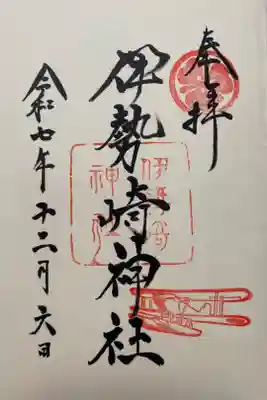 奉拝
伊勢崎神社
令和七年十二月六日
伊勢崎
神社